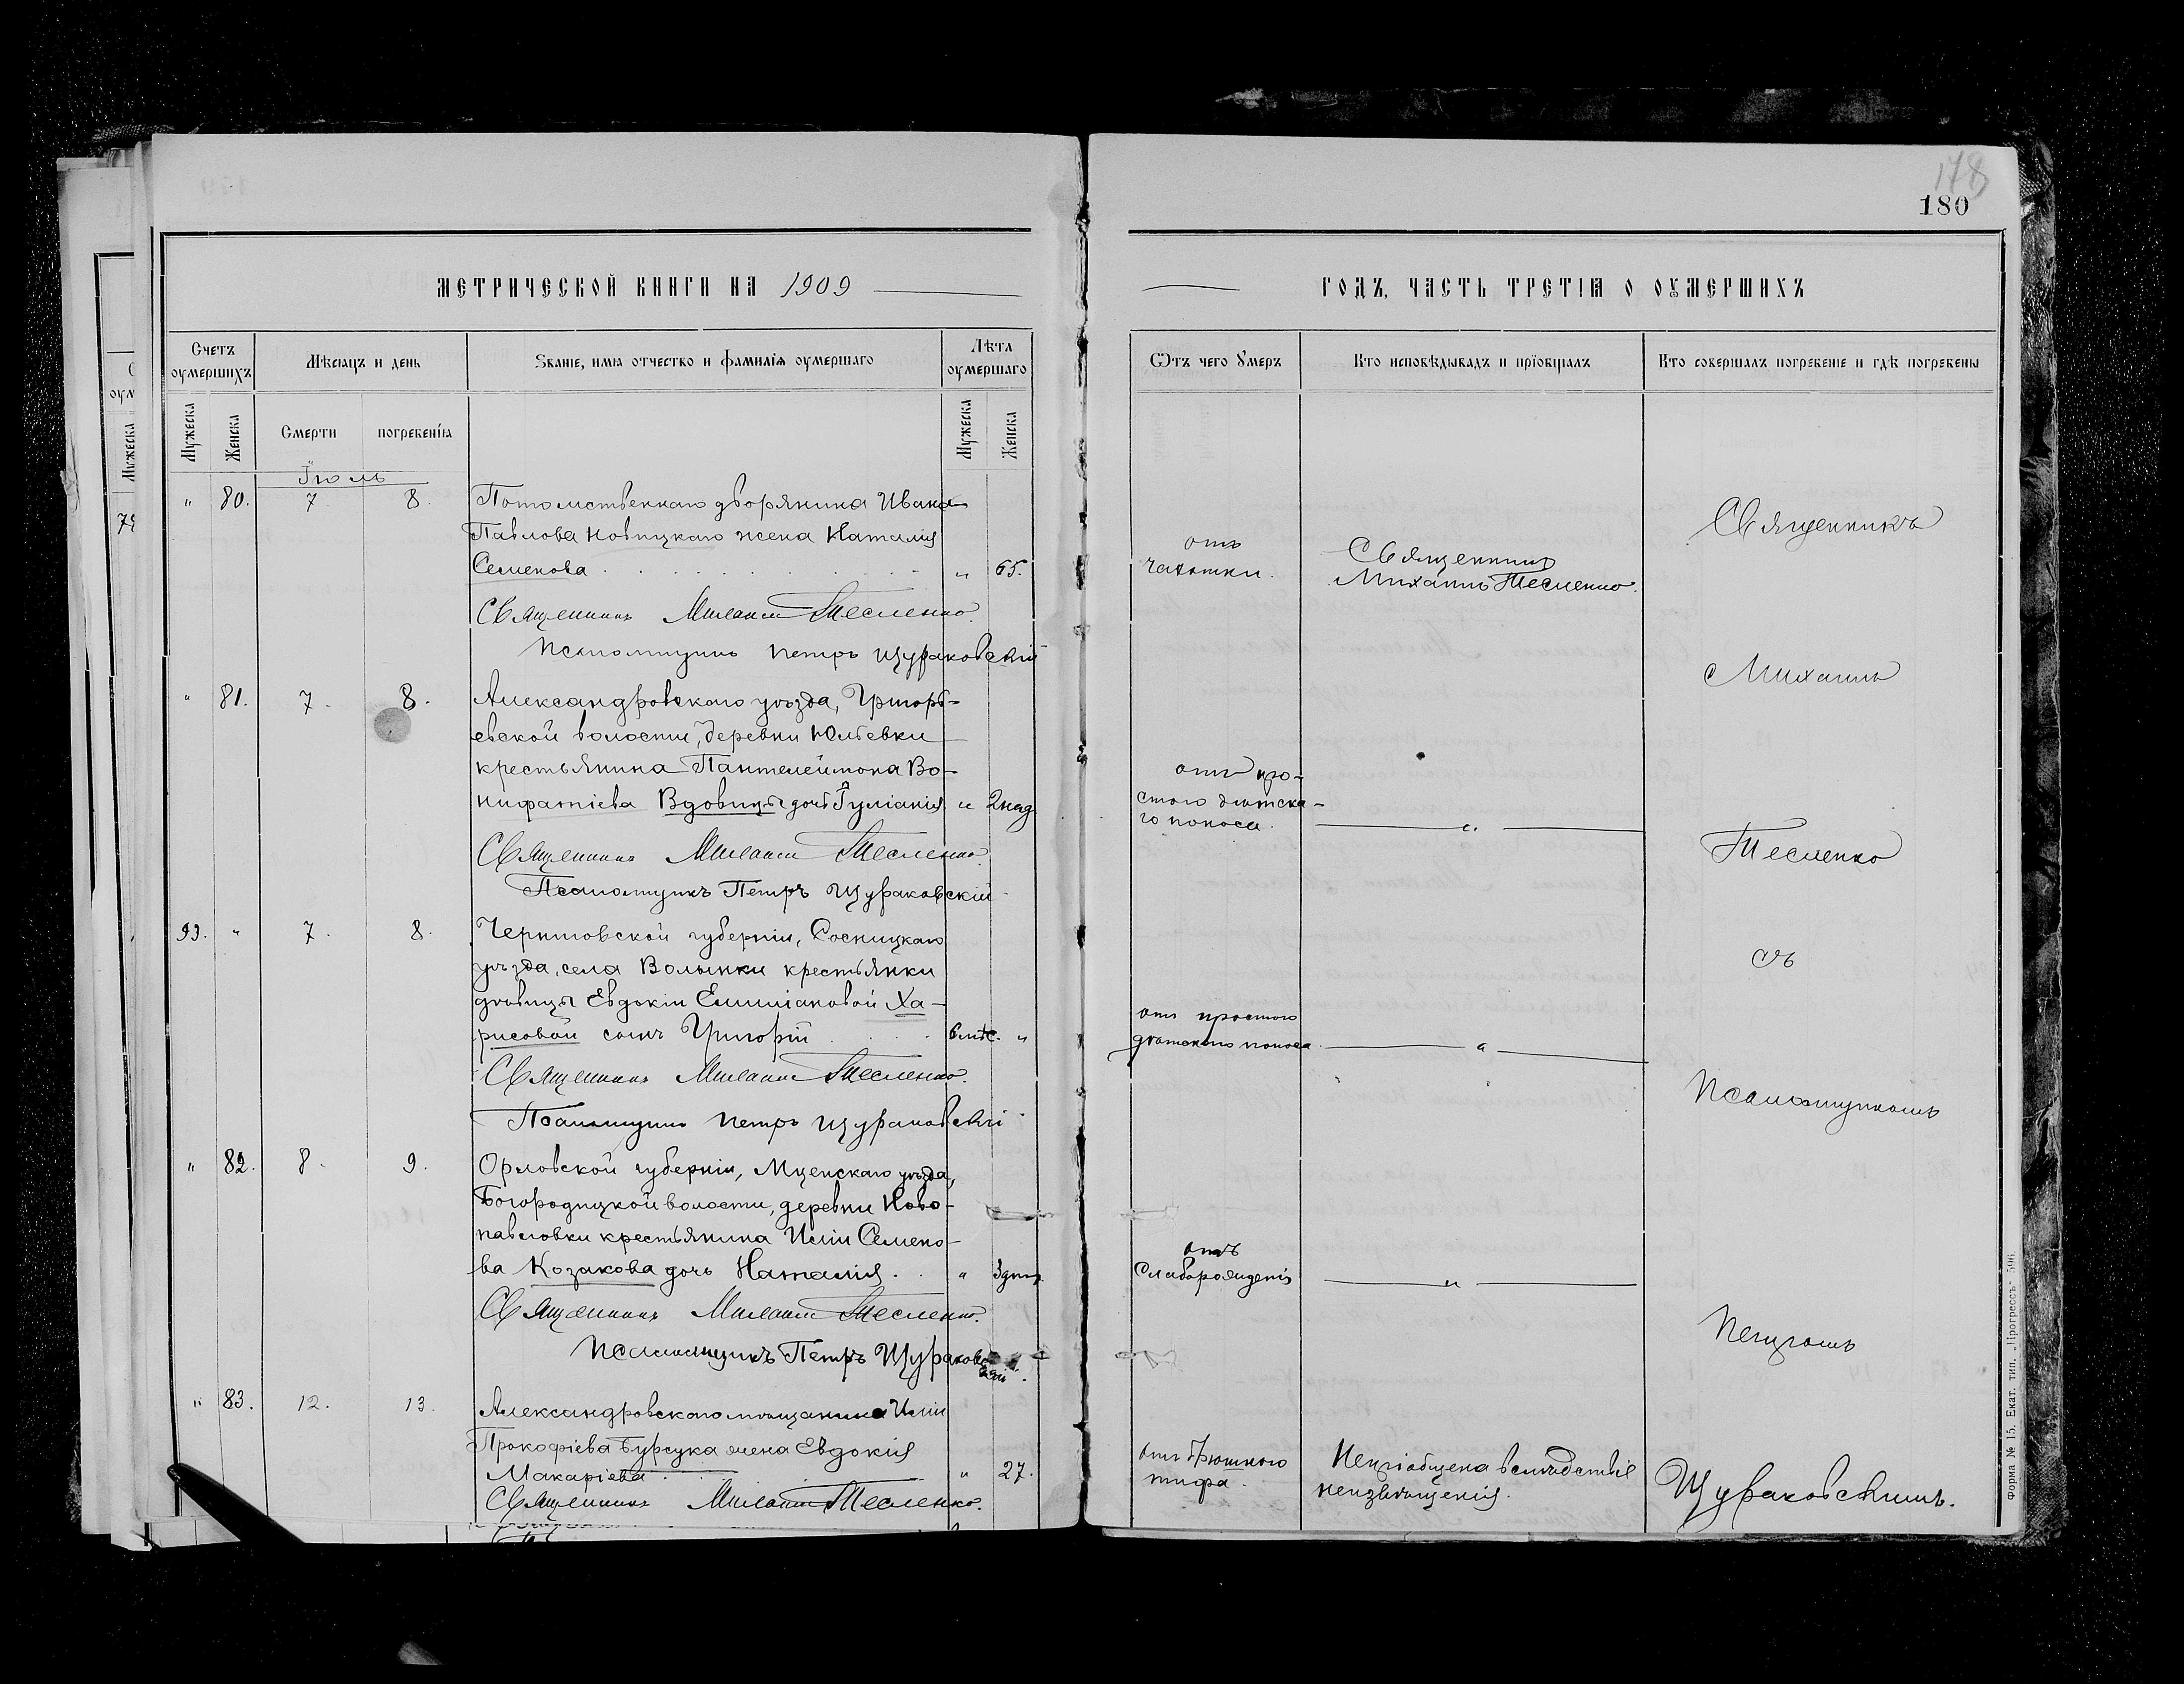 178
180
МЕТРИЧЕСКОЙ КНИГИ НА 1909
ГОДЪ, ЧАСТЬ ТРЕТІѦ О ОУМЕРШИХЪ
Счетъ оумершихъ
Мѣсяцъ и день
Званіе, имѧ отчество и фамилїѧ оумершаго
Лѣта оумершаго
Ѿтъ чего Умеръ
Кто исповѣдывалъ и прїобщалъ
Кто совершалъ погребенїе и гдѣ погребены
Мужеска
Женска
Смерти
погребенїѧ
Мужеска
Женска
Іюль
" 80. 7 8. Потомственнаго дворянина Ивана
Павлова Новицкаго жена Наталія
Семенова " 65.
отъ
чахотки.
Священникъ
Михаилъ Тесленко.
Священникъ Михаилъ Тесленко.
Псаломщикъ Петръ Щураковскій
" 81. 7. 8. Александровскаго уѣзда, Григорь-
евской волости, деревни Юльевки
крестьянина Пантелеймона Во-
нифатіева Вдовицы дочь Іуліанія " 2 нед.
отъ про-
стого дѣтска-
го поноса.
"
Священникъ Михаилъ Тесленко.
Псаломщикъ Петръ Щураковскій
93. " 7. 8. Черниговской губерніи, Сосницкаго
уѣзда, села Волынки крестьянки
дѣвицы Евдокіи Емиліановой Ха-
рисовой сынъ Григорій 6 мѣс. "
отъ простого
дѣтскаго поноса.
"
Священникъ Михаилъ Тесленко.
Псаломщикъ Петръ Щураковскій
" 82. 8. 9. Орловской губерніи, Мценскаго уѣзда,
Богородицкой волости, деревни Ново-
павловки крестьянина Иліи Семено-
ва Козакова дочь Наталія. " 3 дня.
отъ
слаборожденія
"
Священникъ Михаилъ Тесленко.
Псаломщикъ Петръ Щураковскій.
" 83. 12. 13. Александровскаго мѣщанина Иліи
Прокофіева Бурсука жена Евдокія
Макаріева " 27.
отъ брюшного
тифа.
Непріобщена вслѣдствіе
неизвѣщенія.
Священникъ Михаилъ Тесленко.
Священникъ
Михаилъ
Тесленко
съ
Псаломщикомъ
Петромъ
Щураковскимъ.
Форма № 15. Екат. тип. „Прогрессъ"